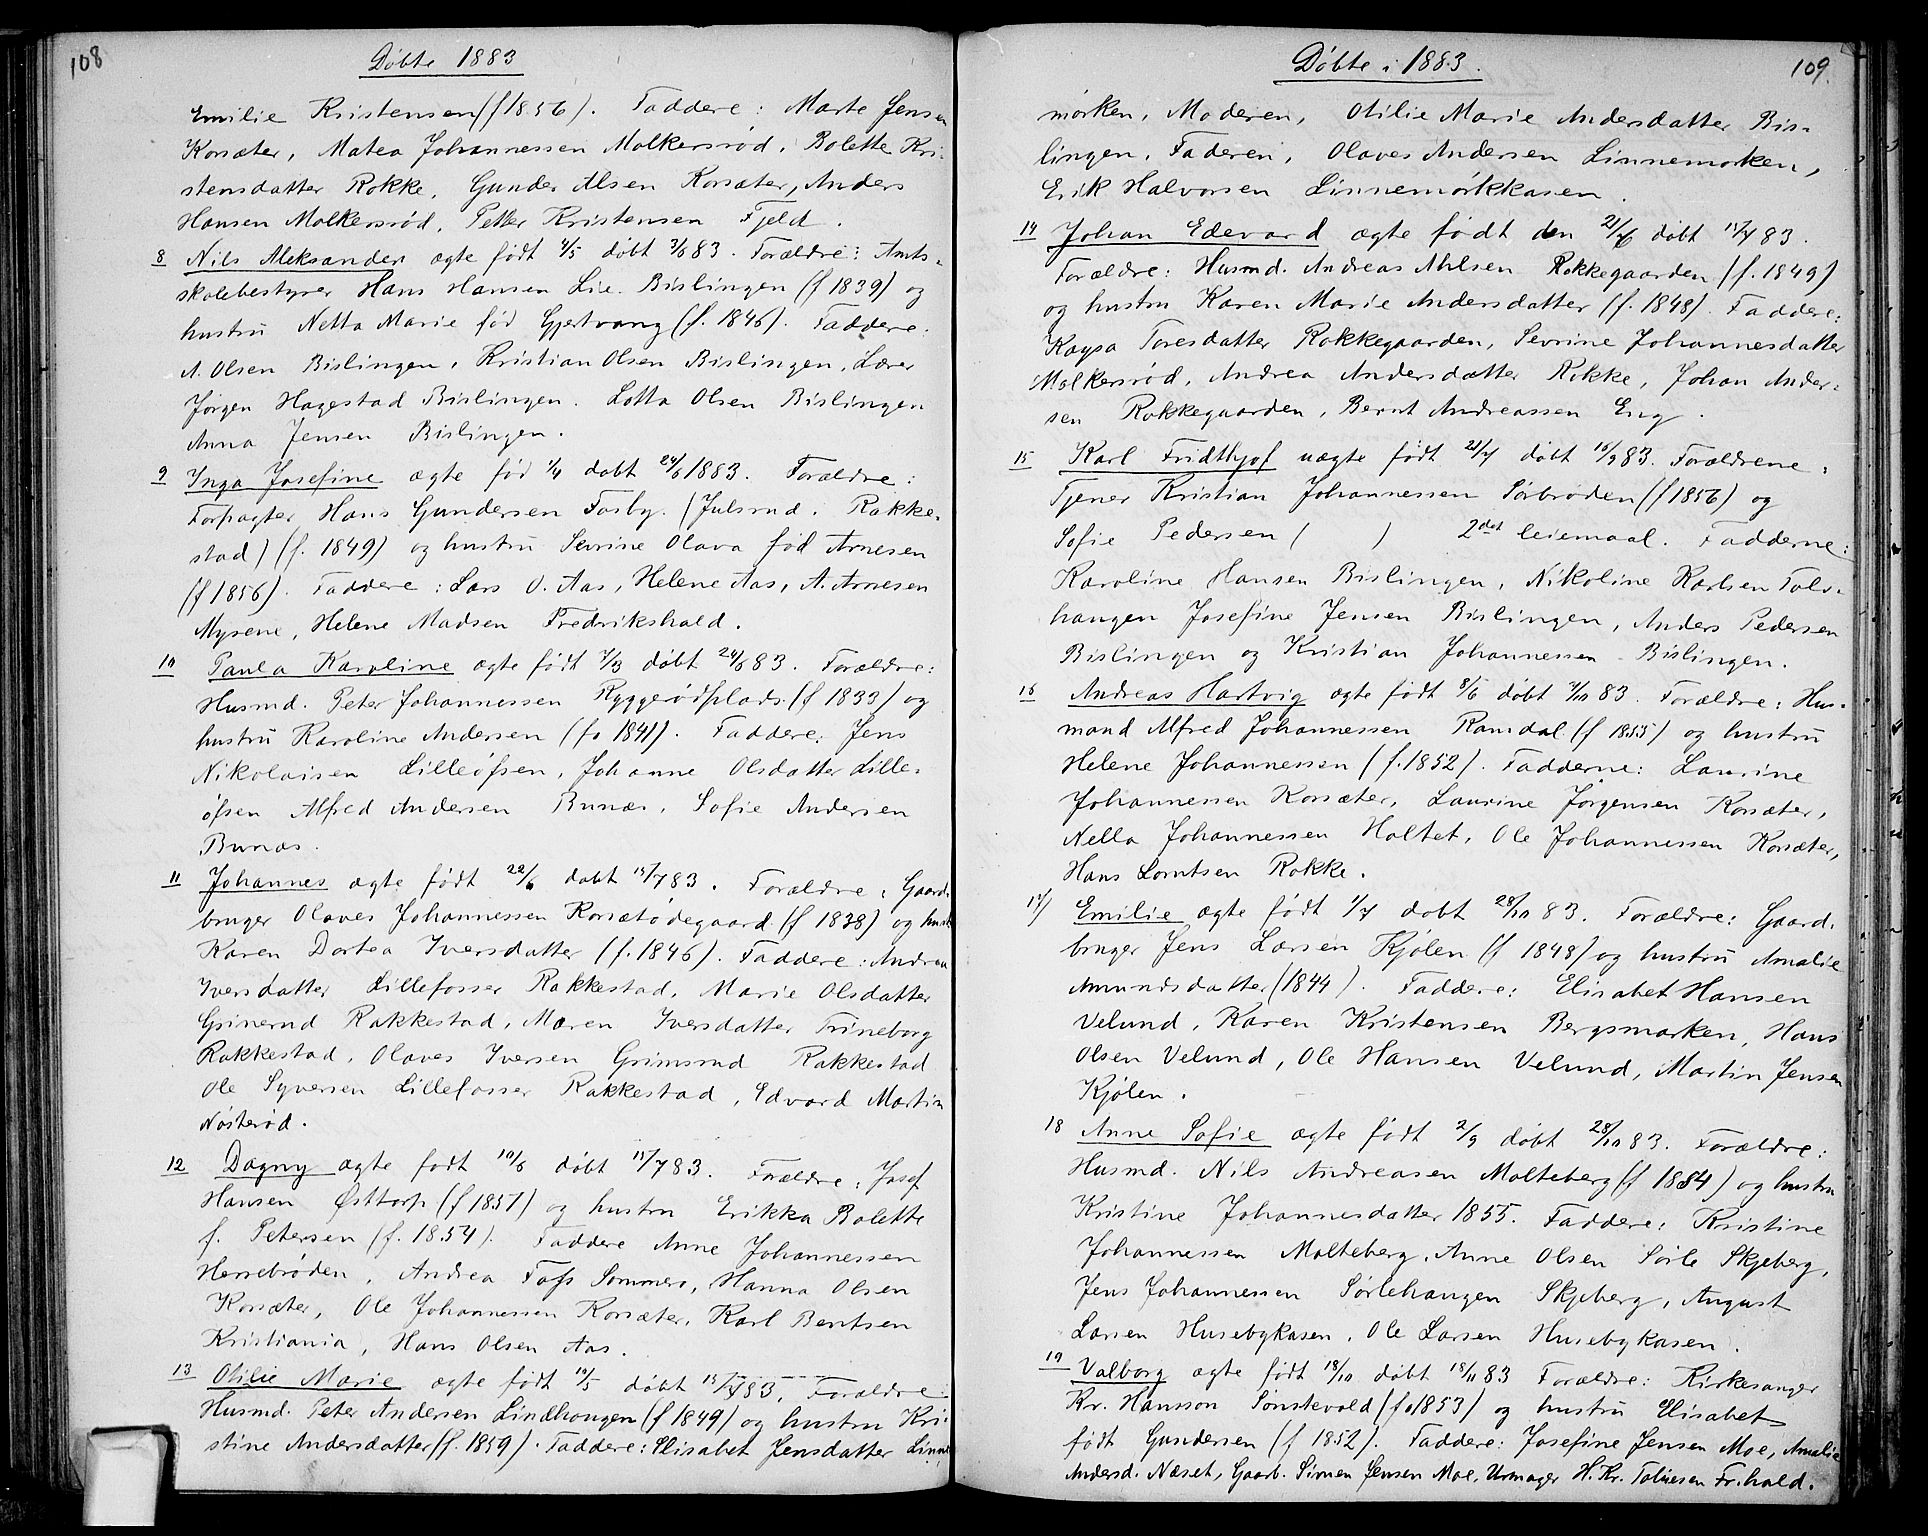 108
Døbte 1883
Emilie Kristensen (f 1856). Faddere: Marte Jensen
Korsæter, Matea Johannessen Molkersrød, Bolette Kri-
stensdatter Rokke, Gunder Alsen Korsæter, Anders
Hansen Molkersrød, Petter Kristensen Fjeld.
8 Nils Aleksander ægte født 4/5 døbt 3/6 83. Forældre: Amts-
skolebestyrer Hans Hansen Lie. Bislingen (f 1839) og
hustru Netta Marie fød Gjestvang (f. 1846). Faddere:
A. Olsen Bislingen, Kristian Olsen Bislingen, Lærer
Jørgen Hagestad Bislingen. Lotta Olsen Bislingen
Anna Jensen Bislingen.
9 Inga Josefine ægte fød 1/4 døbt 24/6 1883. Forældre:
Forpagter Hans Gundersen Fosby. (Julsrud. Rakke-
stad) (f. 1849) og hustru Sevrine Olava fød Arnesen
(f 1856). Faddere: Lars O. Aas, Helene Aas, A. Arnesen
Mysene, Helene Madsen Fredrikshald.
10 Paula Karoline ægte født 7/3 døbt 24/6 83. Forældre:
Husmd. Peter Johannessen Ryggerødplads (f 1833) og
hustru Karoline Andersen (fo 1841). Faddere: Jens
Nikolaisen Lilleøfsen, Johanne Olsdatter Lille-
øfsen Alfred Andersen Bunæs, Sofie Andersen
Bunæs.
11 Johannes ægte født 22/6 døbt 15/7 83. Forældre: Gaard-
bruger Olaves Johannessen Korsætødegaard (f 1838) og hustr
Karen Dortea Iversdatter (f. 1846). Faddere: Andrea
Iversdatter Lillefosser Rakkestad, Marie Olsdatter
Grinerud Rakkestad, Maren Iversdatter Trineborg
Rakkestad, Olaves Iversen Grimsrud Rakkestad
Ole Syversen Lillefosser Rakkestad, Edvard Martin
Nösterød.
12 Dagny ægte født 10/6 døbt 15/7 83. Forældre: Josef
Hansen Østtorp (f 1857) og hustru Erikka Bolette
f. Petersen (f. 1854). Faddere Anne Johannessen
Herrebrøden, Andrea Tofs Sommero, Hanna Olsen
Korsæter, Ole Johannessen Korsæter, Karl Bentsen
Kristiania, Hans Olsen Aas.
13 Otilie Marie ægte født 10/5 døbt 15/7 83. Forældre:
Husmd. Peter Andersen Lindhougen (f 1849) og hustru Kri-
stine Andersdatter (f. 1859). Faddere: Elisabet Jensdatter Linne
109.
Døbte i 1883.
mørken, Moderen, Otilie Marie Andersdatter Bis-
lingen, Faderen, Olaves Andersen Linnemorken,
Erik Halvorsen Linnemörkkasen.
14 Johan Edevard ægte født den 21/4 døbt 15/7 83.
Forældre: Husmd. Andreas Ahlsen Rokkegaarden (f. 1849)
og hustru Karen Marie Andersdatter (f. 1848). Faddere:
Kaysa Toresdatter Rokkegaarden, Sevrine Johannesdatter
Molkersrød, Andrea Andersdatter Rokke, Johan Ander-
sen Rokkegaarden, Bernt Andreassen Eng.
15 Karl Fridthjof uægte født 21/7 døbt 16/9 83. Forældrene:
Tjener Kristian Johannessen Sørbrøden (f 1856) og
Sofie Pedersen ( ) 2det leiemaal. Fadderne:
Karoline Hansen Bislingen, Nikoline Karlsen Tols-
haugen Josefine Jensen Bislingen, Anders Pedersen
Bislingen og Kristian Johannessen Bislingen.
16 Andreas Hartvig ægte født 8/6 døbt 7/10 83. Forældre: Hus-
mand Alfred Johannessen Ramdal (f 1855) og hustru
Helene Johannessen (f. 1852). Fadderne: Laurine
Johannessen Korsæter, Laurine Jørgensen Korsæter,
Nella Johannessen Holtet, Ole Johannessen Korsæter,
Hans Lorntsen Rokke.
17) Emilie ægte født 1/7 døbt 28/10 83. Forældre: Gaard-
bruger Jens Larsen Kjølen (f 1848) og hustru Amalie
Amundsdatter (1844). Faddere: Elisabet Hansen
Velund, Karen Kristensen Bergsmarken, Hans
Olsen Velund, Ole Hansen Velund, Martin Jensen
Kjølen.
18 Anne Sofie ægte født 2/9 døbt 28/10 83. Forældre:
Husmd. Nils Andreasen Molteberg (f 1854) og hustru
Kristine Johannesdatter 1855. Faddere: Kristine
Johannessen Molteberg, Anne Olsen Sörle Skjeberg,
Jens Johannessen Sørlehaugen Skjeberg, August
Larsen Husebykasen, Ole Larsen Husebykasen.
19 Valborg ægte født 18/10 døbt 18/11 83 Forældre: Kirkesanger
Kr. Hansson Sønstevold (fo 1853) og hustru Elisabet
født Gundersen (f 1852). Faddere: Josefine Jensen Moe, Amalie
Andersd. Næset, Gaarb. Simen Jensen Moe, Urmager H. Kr. Tobiesen Fr.hald.